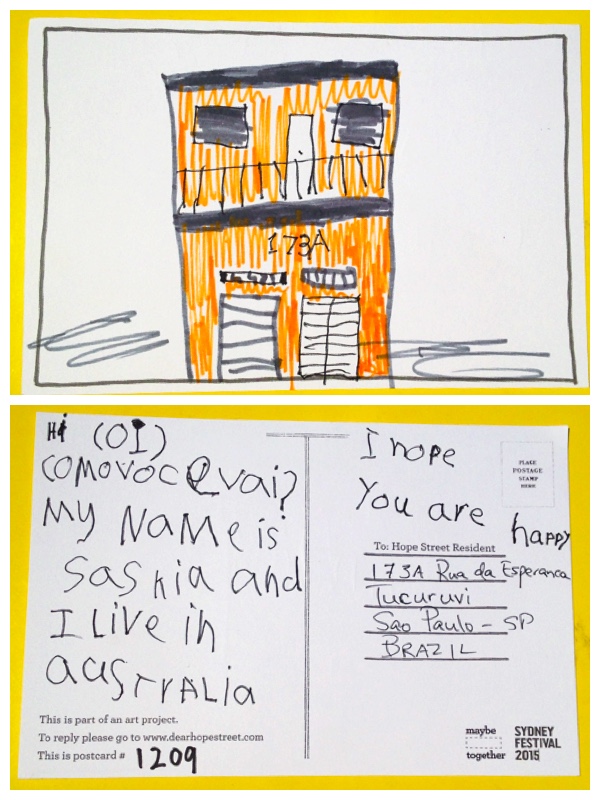 173A
Hi (OI)
COMOVOCEVai?
My NaMe is
Saskia and
I Live in
aUSTRALia
This is part of an art project.
To reply please go to www.dearhopestreet.com
This is postcard # 1209
I hope
You are happy
PLACE
POSTAGE
STAMP
HERE
To: Hope Street Resident
173A Rua da Esperanca
Tucuruvi
Sao Paulo - SP
BRAZIL
maybe
together
SYDNEY
FESTIVAL
2015